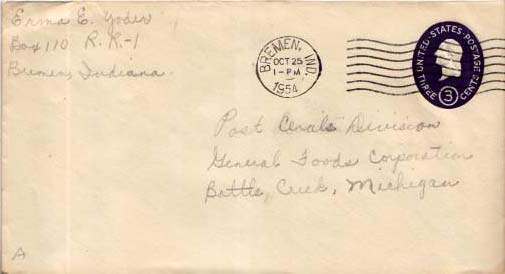 Erma E. Yoder
Box 110 R. R.-1
Bremen, Indiana.
BREMEN, IND.
OCT 25
1-PM
1954
UNITED·STATES·POSTAGE
THREE 3 CENTS
Post Cerals Division
General Foods Corporation
Battle Creek, Michigan
A